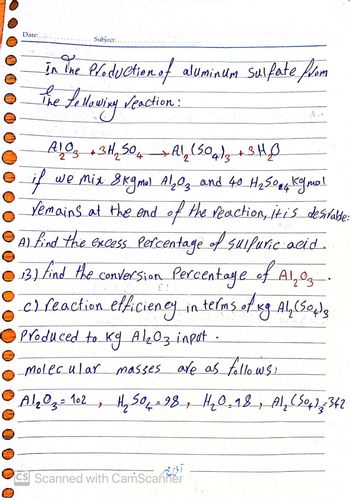 Date: Subject:
In The Production of aluminum sulfate from
The following reaction:
Al2O3 + 3H2SO4 → Al2(SO4)3 + 3H2O
if we mix 8kgmol Al2O3 and 40 H2SO4 kgmol
remains at the end of the reaction, it is desirable:
A) find the excess Percentage of sulfuric acid.
B) find the conversion Percentage of Al2O3.
c) reaction efficiency in terms of kg Al2(SO4)3
Produced to kg Al2O3 input.
molecular masses are as follows:
Al2O3 = 102, H2SO4 = 98, H2O = 18, Al2(SO4)3 = 342
CS Scanned with CamScanner